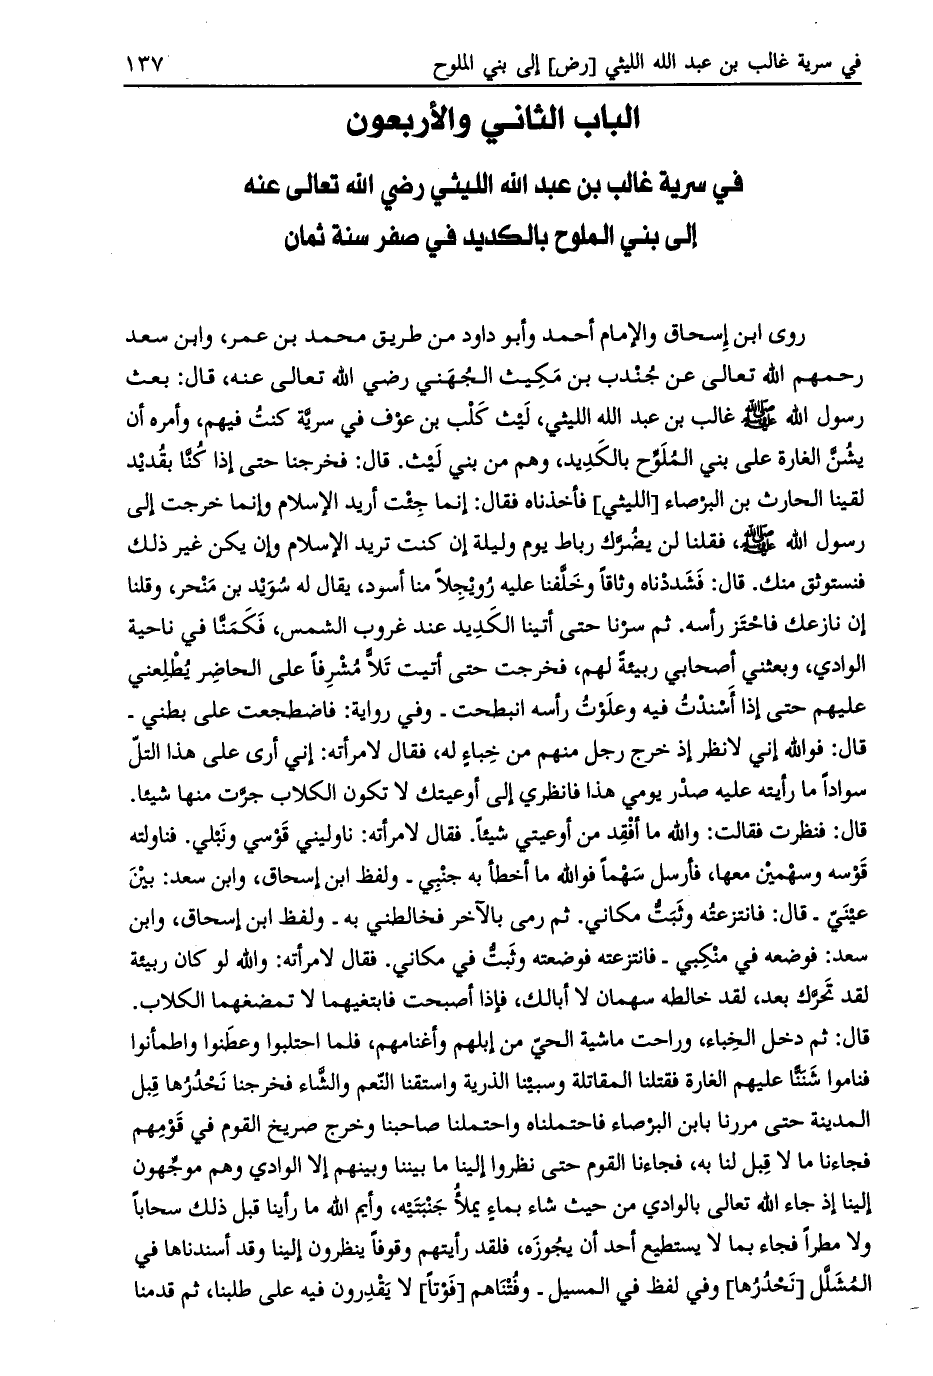 في سرية غالب بن عبد الله الليثي [رض] إلى بني الملوح ١٣٧
الباب الثاني والأربعون
في سرية غالب بن عبد الله الليثي رضي الله تعالى عنه
إلى بني الملوح بالكديد في صفر سنة ثمان
روى ابن إسحاق والإمام أحمد وأبو داود من طريق محمد بن عمر، وابن سعد
رحمهم الله تعالى عن جُنْدب بن مَكِيث الجُهَني رضي الله تعالى عنه، قال: بعث
رسول الله ﷺ غالب بن عبد الله الليثي، لَيْث كَلْب بن عوْف في سريَّة كنتُ فيهم، وأمره أن
يشُنَّ الغارة على بني المُلَوَّح بالكَدِيد، وهم من بني لَيْث. قال: فخرجنا حتى إذا كُنَّا بقُديْد
لقينا الحارث بن البرْصاء [الليثي] فأخذناه فقال: إنما جِئْت أريد الإسلام وإنما خرجت إلى
رسول الله ﷺ، فقلنا لن يضُرَّك رباط يوم وليلة إن كنت تريد الإسلام وإن يكن غير ذلك
فنستوثق منك. قال: فَشَددْناه وثاقاً وخَلَّفنا عليه رُويْجِلاً منا أسود، يقال له سُوَيْد بن مَنْحر، وقلنا
إن نازعك فاحْتَز رأسه. ثم سرْنا حتى أتينا الكَدِيد عند غروب الشمس، فَكَمَنَّا في ناحية
الوادي، وبعثني أصحابي ربيئةً لهم، فخرجت حتى أتيت تَلاًّ مُشْرِفاً على الحاضِر يُطْلِعني
عليهم حتى إذا أَسْندْتُ فيه وعلَوْتُ رأسه انبطحت ـ وفي رواية: فاضطجعت على بطني ـ
قال: فوالله إني لانظر إذ خرج رجل منهم من خِباءٍ له، فقال لامرأته: إني أرى على هذا التلّ
سواداً ما رأيته عليه صدْر يومي هذا فانظري إلى أوعيتك لا تكون الكلاب جرَّت منها شيئا.
قال: فنظرت فقالت: والله ما أفْقِد من أوعيتي شيئاً. فقال لامرأته: ناوليني قَوْسي ونَبْلي. فناولته
قَوْسه وسهْميْن معها، فأرسل سَهْماً فوالله ما أخطأ به جنْبِي ـ ولفظ ابن إسحاق، وابن سعد: بيْنَ
عيْنَيّ ـ قال: فانتزعتُه وثَبَتُّ مكاني. ثم رمى بالآخر فخالطني به ـ ولفظ ابن إسحاق، وابن
سعد: فوضعه في منْكِبي ـ فانتزعته فوضعته وثَبتُّ في مكاني. فقال لامرأته: والله لو كان ربيئة
لقد تَحَرَّك بعد، لقد خالطه سهمان لا أبالك، فإذا أصبحت فابتغيهما لا تمضغهما الكلاب.
قال: ثم دخل الخِباء، وراحت ماشية الحيّ من إبلهم وأغنامهم، فلما احتلبوا وعطَنوا واطمأنوا
فناموا شَنَنَّا عليهم الغارة فقتلنا المقاتلة وسبيْنا الذرية واستقنا النّعم والشَّاء فخرجنا نَحْدُرُها قِبل
المدينة حتى مررنا بابن البرْصاء فاحتملناه واحتملنا صاحبنا وخرج صريخ القوم في قَوْمِهم
فجاءنا ما لا قِبل لنا به، فجاءنا القوم حتى نظروا إلينا ما بيننا وبينهم إلا الوادي وهم موجِّهون
إلينا إذ جاء الله تعالى بالوادي من حيث شاء بماءٍ يملأُ جَنْبَتَيْه، وأيم الله ما رأينا قبل ذلك سحاباً
ولا مطراً فجاء بما لا يستطيع أحد أن يجُوزَه، فلقد رأيتهم وقوفاً ينظرون إلينا وقد أسندناها في
المُشَلَّل [نَحْدُرُها] وفي لفظ في المسيل ـ وفُتْنَاهم [فَوْتاً] لا يَقْدِرون فيه على طلبنا، ثم قدمنا